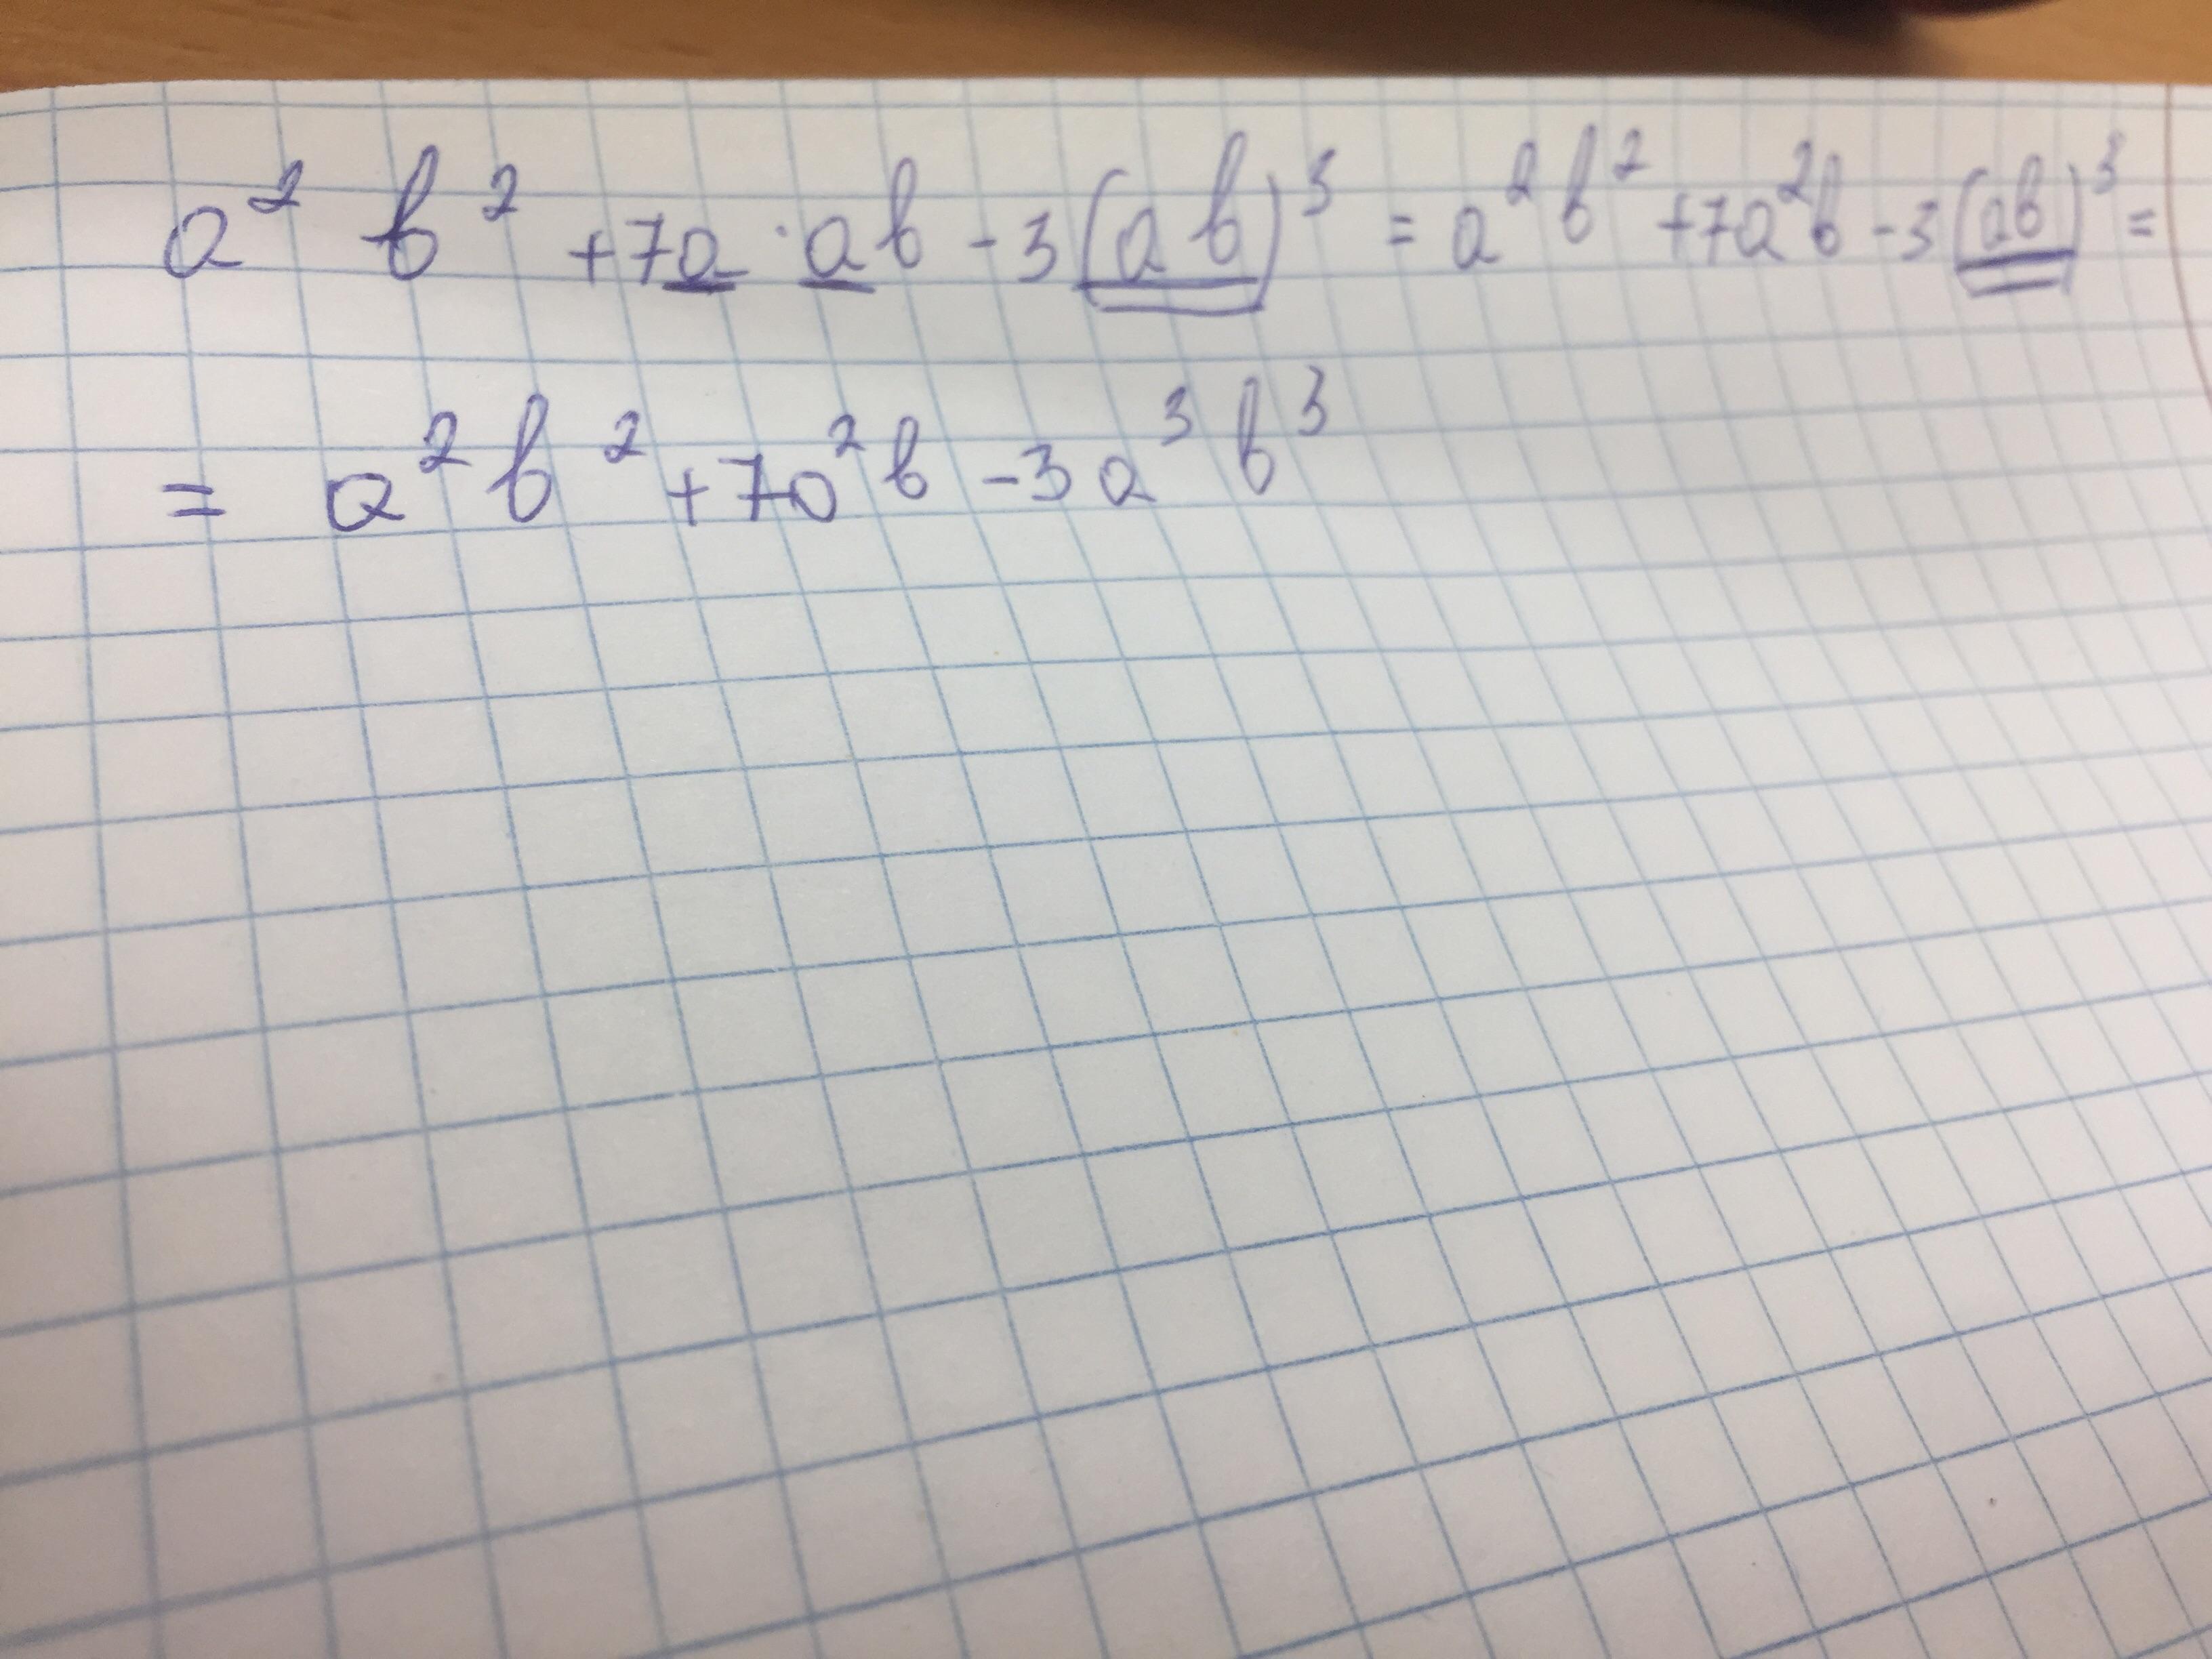 a² b² +7a · ab - 3(ab)³ = a² b² +7a²b - 3(ab)³ =
= a² b² +7a²b - 3a³ b³